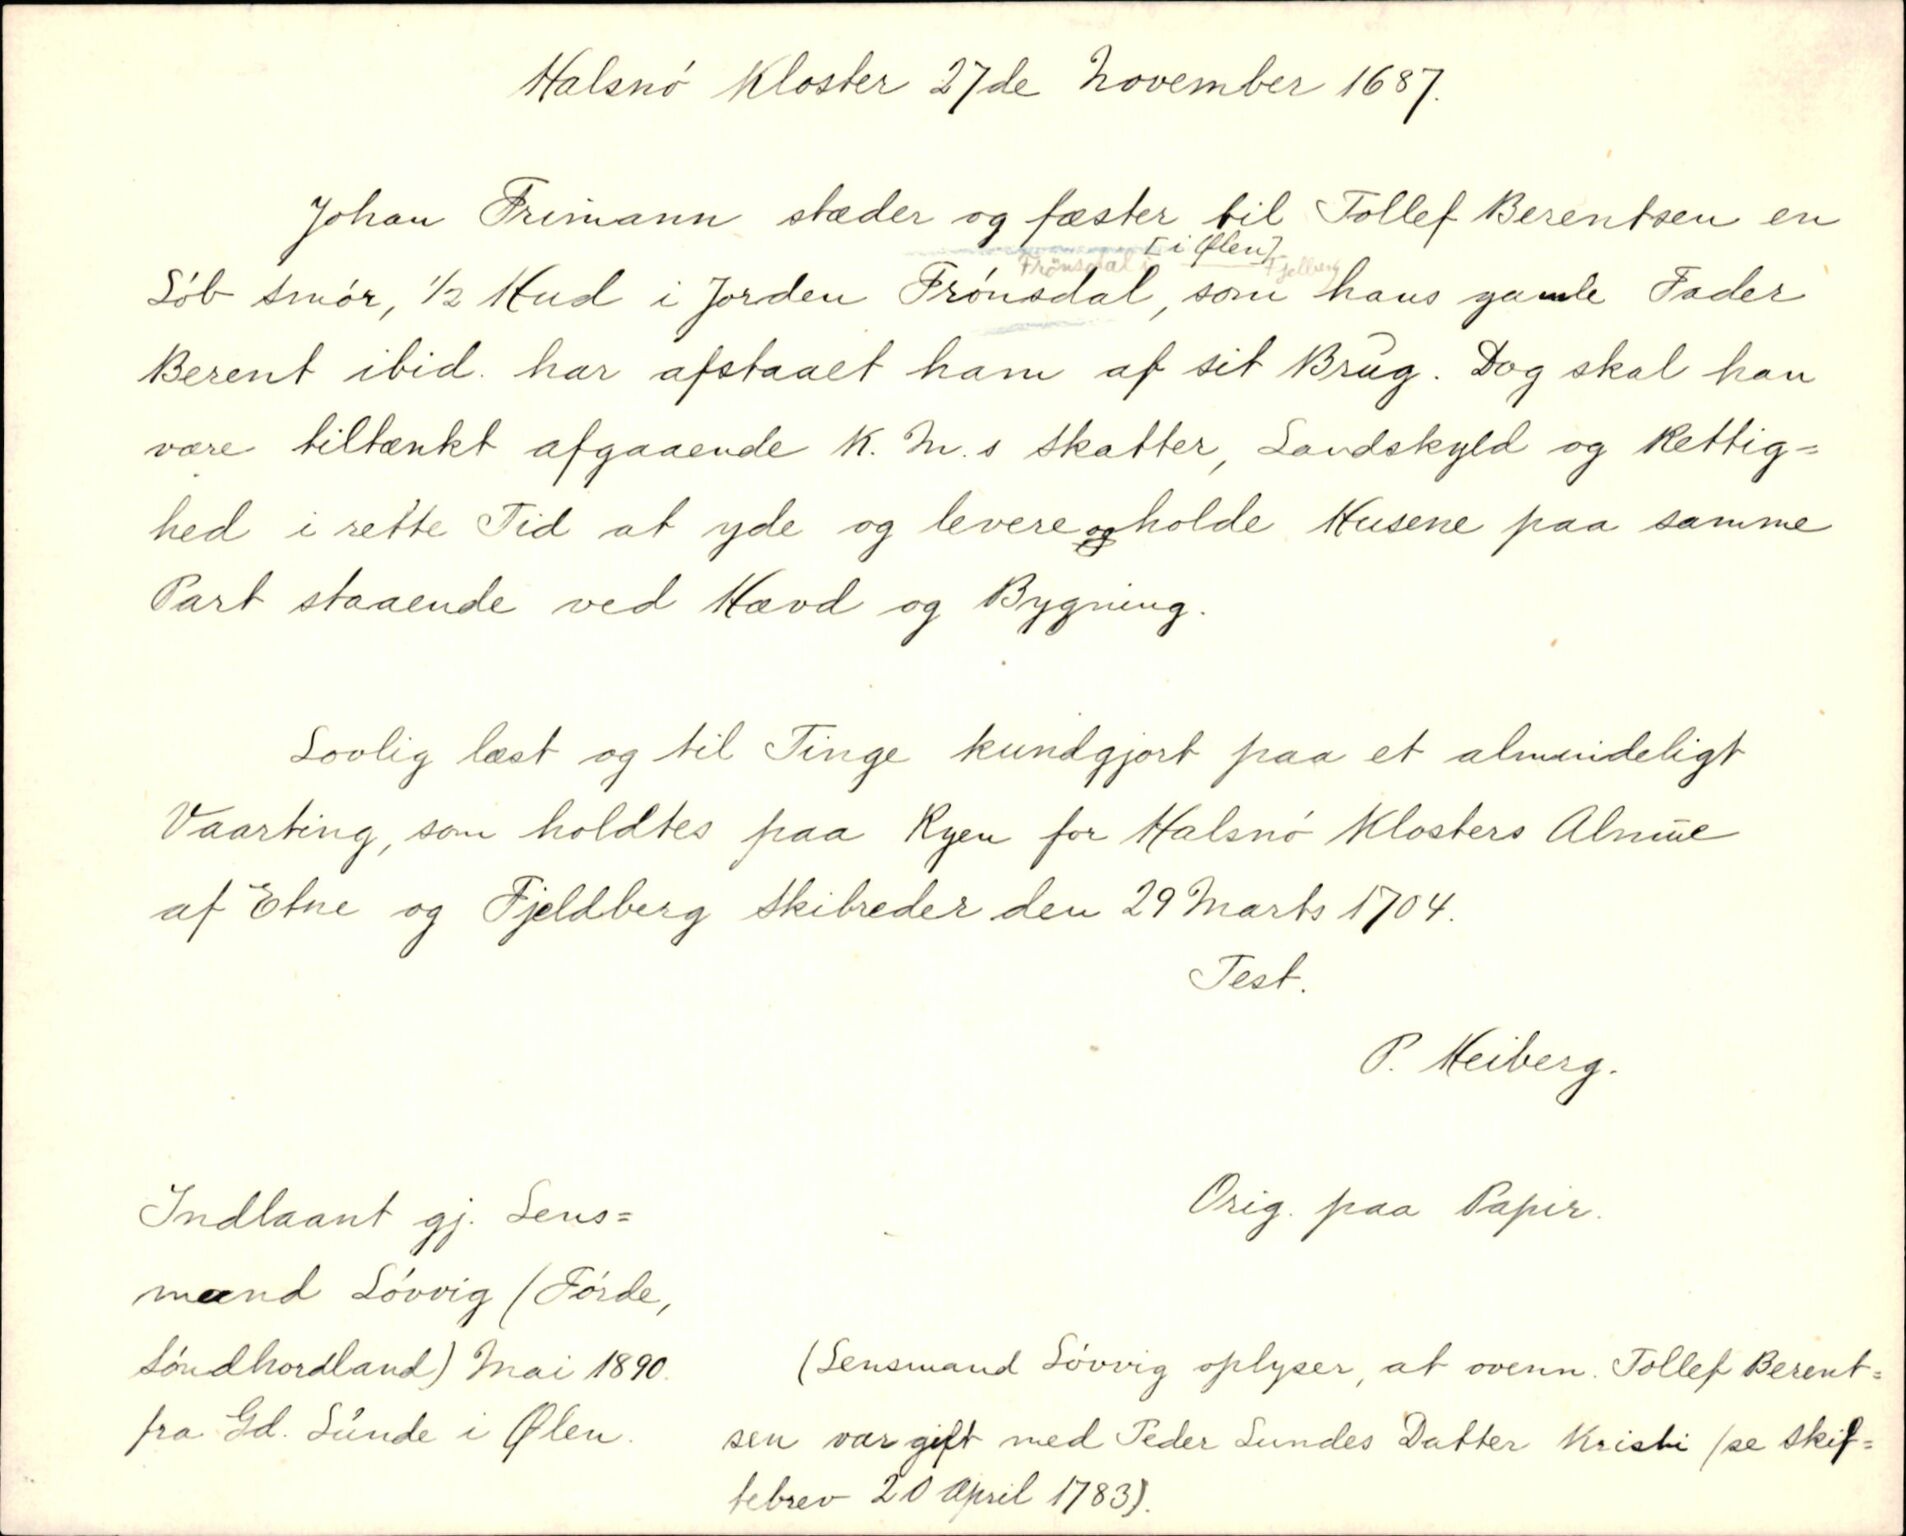 Halsnó Kloster 27de November 1687.
Johan Frimann stæder og fæster til Tollef Berentsen en
[i Ølen]
Frönsdal i Fjelberg
Lób Smór, 1/2 Hud i Jorden Frónsdal, som hans gamle Fader
Berent ibid. har afstaaet ham af sit Brug. Dog skal han
være tiltænkt afgaaende K. M.s Skatter, Landskyld og Rettig=
hed i rette Tid at yde og levere og holde Husene paa samme
Part staaende ved Hævd og Bygning.
Lovlig læst og til Tinge kundgjort paa et almindeligt
Vaarting, som holdtes paa Ryen for Halsnó Klosters Almue
af Etne og Fjeldberg Skibreder den 29 Marts 1704.
Test.
P. Heiberg.
Orig. paa Papir.
Indlaant gj. Lens=
mand Lóvvig (Fórde,
Sóndhordland) Mai 1890.
fra Gd. Lunde i Ølen.
(Lensmand Lóvvig oplyser, at ovenn. Tollef Berent=
sen var gift med Peder Lundes Datter Kristi (se Skif=
tebrev 20 April 1783).